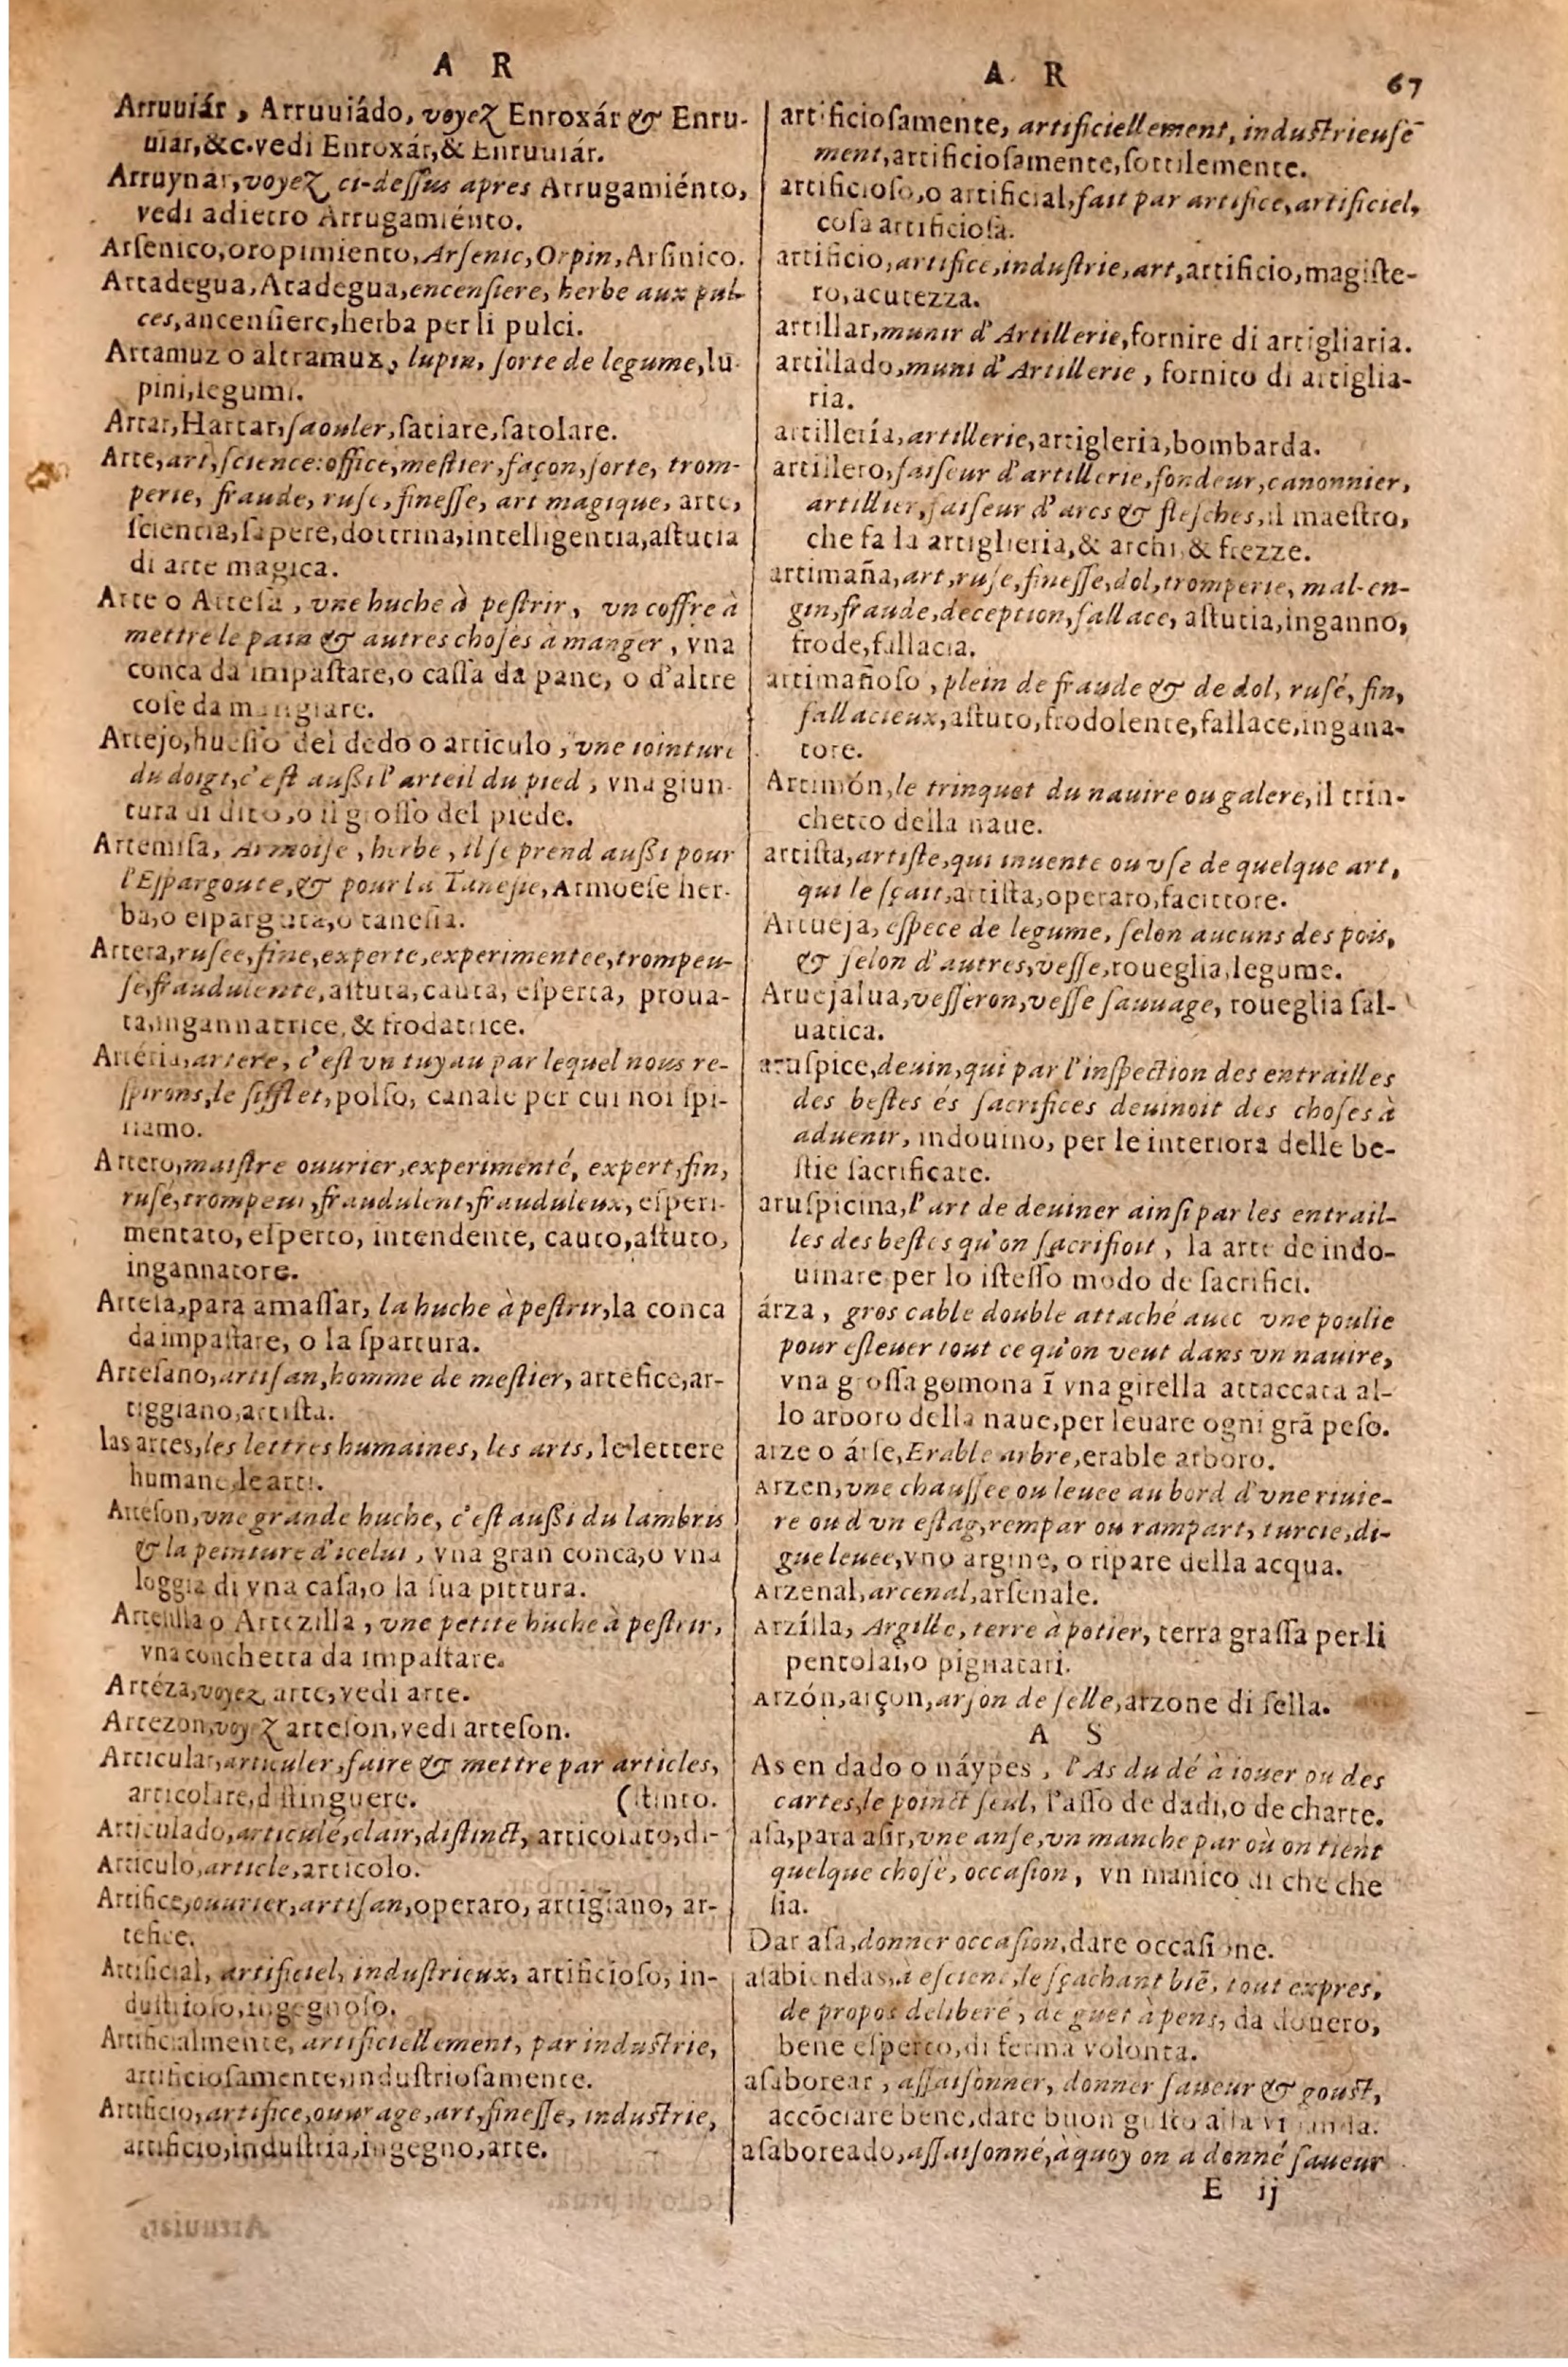 A R
Arruuiár, Arruuiádo, voyez Enroxár & Enru-
uiar,&c.vedi Enroxár,& Enruuiár.
Arruynár,voyez ci-dessus apres Arrugamiénto,
vedi adietro Arrugamiénto.
Arſenico,oropimiento,Arſenic,Orpin,Arſinico.
Artadegua,Atadegua,encenſiere, herbe aux pul-
ces,ancenſiere,herba per li pulci.
Artamuz o altramuz, lupin, ſorte de legume,lu-
pini,legumi.
Artar,Hartar,ſaouler,ſatiare,ſatolare.
Arte,art,ſcience:office,meſtier,façon,ſorte, trom-
perie, fraude, ruſe,fineſſe, art magique, arte,
ſcientia,ſapere,dottrina,intelligentia,aſtutia
di arte magica.
Arte o Arteſa, vne huche à peſtrir, vn coffre à
mettre le pain & autres choſes à manger, vna
conca da impaſtare,o caſſa da pane, o d'altre
coſe da mangiare.
Artejo,hueſſo del dedo o articulo, vne iointure
du doigt,c'eſt außi l'arteil du pied, vna giun-
tura di dito,o il groſſo del piede.
Artemiſa, Armoiſe, herbe, il ſe prend außi pour
l'Eſpargoute,& pour la Taneſie,Armoeſe her-
ba,o eſparguta,o taneſia.
Artera,ruſee,fine,experte,experimentee,trompeu-
ſe,fraudulente,aſtuta,cauta, eſperta, proua-
ta,ingannatrice,& frodatrice.
Artéria,artere, c'eſt vn tuyau par lequel nous re-
ſpirons,le ſifflet,polſo, canale per cui noi ſpi-
riamo.
Artero,maiſtre ouurier,experimenté, expert,fin,
ruſé,trompeur,fraudulent,frauduleux, eſperi-
mentato, eſperto, intendente, cauto,aſtuto,
ingannatore.
Arteſa,para amaſſar, la huche à peſtrir,la conca
da impaſtare, o la ſpartura.
Arteſano,artiſan,homme de meſtier, artefice,ar-
tiggiano,artiſta.
las artes,les lettres humaines, les arts, le lettere
humane,le arti.
Arteſon,vne grande huche, c'eſt außi du lambris
& la peinture d'icelui, vna gran conca,o vna
loggia di vna caſa,o la ſua pittura.
Arteſilla o Artezilla, vne petite huche à peſtrir,
vna conchetta da impaſtare.
Artéza,voyez arte,vedi arte.
Artezon,voyez arteſon,vedi arteſon.
Articular,articuler,faire & mettre par articles,
articolare,diſtinguere. (ſtinto.
Articulado,articulé,clair,diſtinct, articolato,di-
Articulo,article,articolo.
Artifice,ouurier,artiſan,operaro, artigiano, ar-
tefice.
Artificial, artificiel, induſtrieux, artificioſo, in-
duſtrioſo,ingegnoſo.
Artificialmente, artificiellement, par induſtrie,
artificioſamente,induſtrioſamente.
Artificio,artifice,ouurage,art,fineſſe, induſtrie,
artificio,induſtria,ingegno,arte.
A R 67
artificioſamente, artificiellement, induſtrieuſē
ment,artificioſamente,ſottilemente.
artificioſo,o artificial,fait par artifice,artificiel,
coſa artificioſa.
artificio,artifice,induſtrie,art,artificio,magiſte-
ro,acutezza.
artillar,munir d'Artillerie,fornire di artigliaria.
artillado,muni d'Artillerie, fornito di artiglia-
ria.
artillería,artillerie,artigleria,bombarda.
artillero,faiſeur d'artillerie,fondeur,canonnier,
artillier,faiſeur d'arcs & fleſches,il maeſtro,
che fa la artiglieria,& archi,& frezze.
artimaña,art,ruſe,fineſſe,dol,tromperie, mal-en-
gin,fraude,deception,fallace, aſtutia,inganno,
frode,fallacia.
artimañoſo, plein de fraude & de dol, ruſé, fin,
fallacieux,aſtuto,frodolente,fallace,ingana-
tore.
Artimón,le trinquet du nauire ou galere,il trin-
chetto della naue.
artiſta,artiſte,qui inuente ou vſe de quelque art,
qui le ſçait,artiſta,operaro,facittore.
Artueja, eſpece de legume, ſelon aucuns des pois,
& ſelon d'autres,veſſe,roueglia,legume.
Aruejalua,veſſeron,veſſe ſauuage, roueglia ſal-
uatica.
aruſpice,deuin,qui par l'inſpection des entrailles
des beſtes és ſacrifices deuinoit des choſes à
aduenir, indouino, per le interiora delle be-
ſtie ſacrificate.
aruſpicina,l'art de deuiner ainſi par les entrail-
les des beſtes qu'on ſacrifioit, la arte de indo-
uinare per lo iſteſſo modo de ſacrifici.
árza, gros cable double attaché auec vne poulie
pour eſleuer tout ce qu'on veut dans vn nauire,
vna groſſa gomona ĩ vna girella attaccata al-
lo arboro della naue,per leuare ogni grã peſo.
arze o árſe,Erable arbre,erable arboro.
Arzen,vne chauſſee ou leuee au bord d'vne riuie-
re ou d vn eſtag,rempar ou rampart, turcie,di-
gue leuee,vno argine, o ripare della acqua.
Arzenal,arcenal,arſenale.
Arzílla, Argille, terre à potier, terra graſſa per li
pentolai,o pignatari.
Arzón,arçon,arſon de ſelle,arzone di ſella.
A S
As en dado o náypes, l'As du dé à iouer ou des
cartes,le poinct ſeul, l'aſſo de dadi,o de charte.
aſa,para aſir,vne anſe,vn manche par où on tient
quelque choſe, occaſion, vn manico di che che
ſia.
Dar aſa,donner occaſion,dare occaſione.
aſabiendas,à eſcient,le ſçachant biē, tout expres,
de propos deliberé, de guet à pens, da douero,
bene eſperto,di ferma volonta.
aſaborear, aſſaiſonner, donner ſaueur & gouſt,
accõciare bene,dare buon guſto alla vianda.
aſaboreado,aſſaiſonné,à quoy on a donné ſaueur
E ij